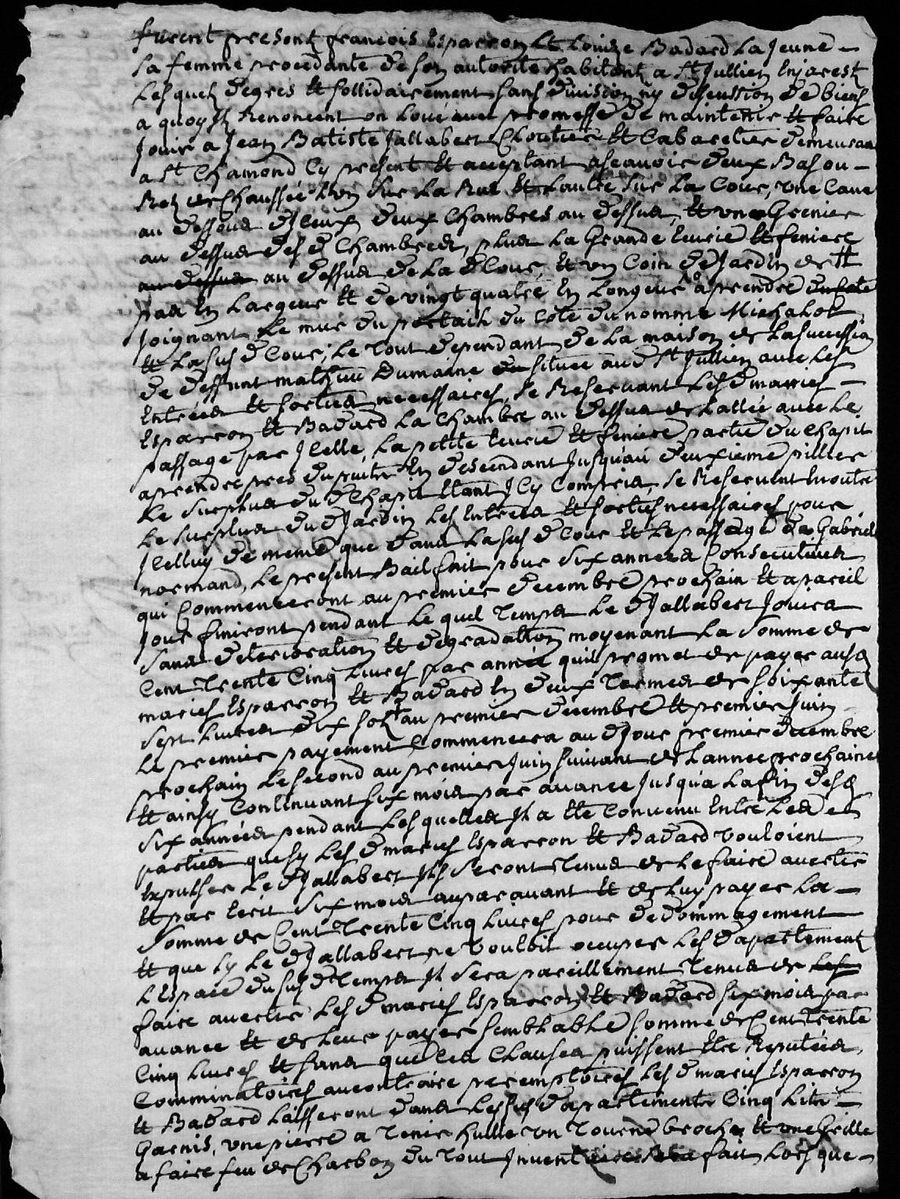 furent presont françois Esparron et Louise Badard La Jeune
sa femme procedante de son autorité habitant a St Jullien En jarest
Lesquels degres et sollidairement sans division ny discussion de biens
a quoy Ils Renoncent on Loué avec promesse de maintenir et faire
Jouir a Jean Batiste Jallabert Cloutier et Cabaretier demeurant
a St Chamond Cy present et acceptant ascavoir deux Bas ou
Rez de Chaussée L'un sur La Rue et Lautre sur La Cour, une Cave
au dessous d'Iceux deux Chambres au dessus, et un Grenier
au dessus desd Chambres, plus La Grande Ecurie et feniere
au dessus de La d Cour, et un Coin de Jardin de
pas En Largeur et de vingt quatre En Longeur a prendre
Joignant Le mur du portail du Coté du nommé Michalot
et Lasus d Cour; Le Tout dependant de La maison de La succession
de deffunt mathieu Dumaine située aud St Jullien avec Les
Entrées et sorties necessaires, se Reservant Les d mariés
Esparron et Badard La Chambre au dessus de Lallée avec Le
passage par Icelle, La petite Ecurie et feniere partie du Chapit
aprendre pres du puits En descendant Jusquau deuxieme pillier
Le surplus du d Chapit Etant Icy Compris se Reservent Encore
Le surplus du d Jardin Les Entrées et sorties necessaires pour
Icelluy de meme que dans Lasus d Cour et Le passage de Gabriel
normand, Le present Bail fait pour six années Consecutives
qui Commenceront au premier decembre prochain et apareil
Jour finiront pendant Le quel Temps Le d Jallabert Jouira
sans deterioration et degradation moyenant La somme de
Cent Trente Cinq Livres par année quil promet de payer ausd
mariés Esparron et Badard En deux Termes de soixante
sept Livres dix sols au premier decembre et premier Juin
Le premier payement Commencera aud Jour premier decembre
prochain Le second au premier Juin suivant de Lannée prochaine
et ainsy Continuant six mois par avance Jusqua La fin desd
six années pendant Les quelles Il a été Convenu Entre Les
parties que sy Les d mariés Esparron et Badard vouloient
Expulser Le d Jallabert Ils seront Tenus de Le faire avertir
et par Ecrit six mois auparavant et de Luy payer La
somme de Cent Trente Cinq Livres pour dedommagement
et que sy Le d Jallabert ne vouloit occuper Les d apartement
L'Espace du sus d Temps Il sera pareillement Tenus de
faire avertir Les d mariés Esparron et Badard six mois par
avance et de Leur payer semblable somme de Cent Trente
Cinq Livres et sans que Ces Clauses puissent Etre Reputées
Comminatoires au contraire peremptoires Les d mariés Esparron
et Badard Laisseront dans Les sus d apartements Cinq Lits
Garnis, une pierre a Tenir huille un Tourne broche et une Grille
a faire feu de Charbon du Tout Inventaire sera fait Lors que